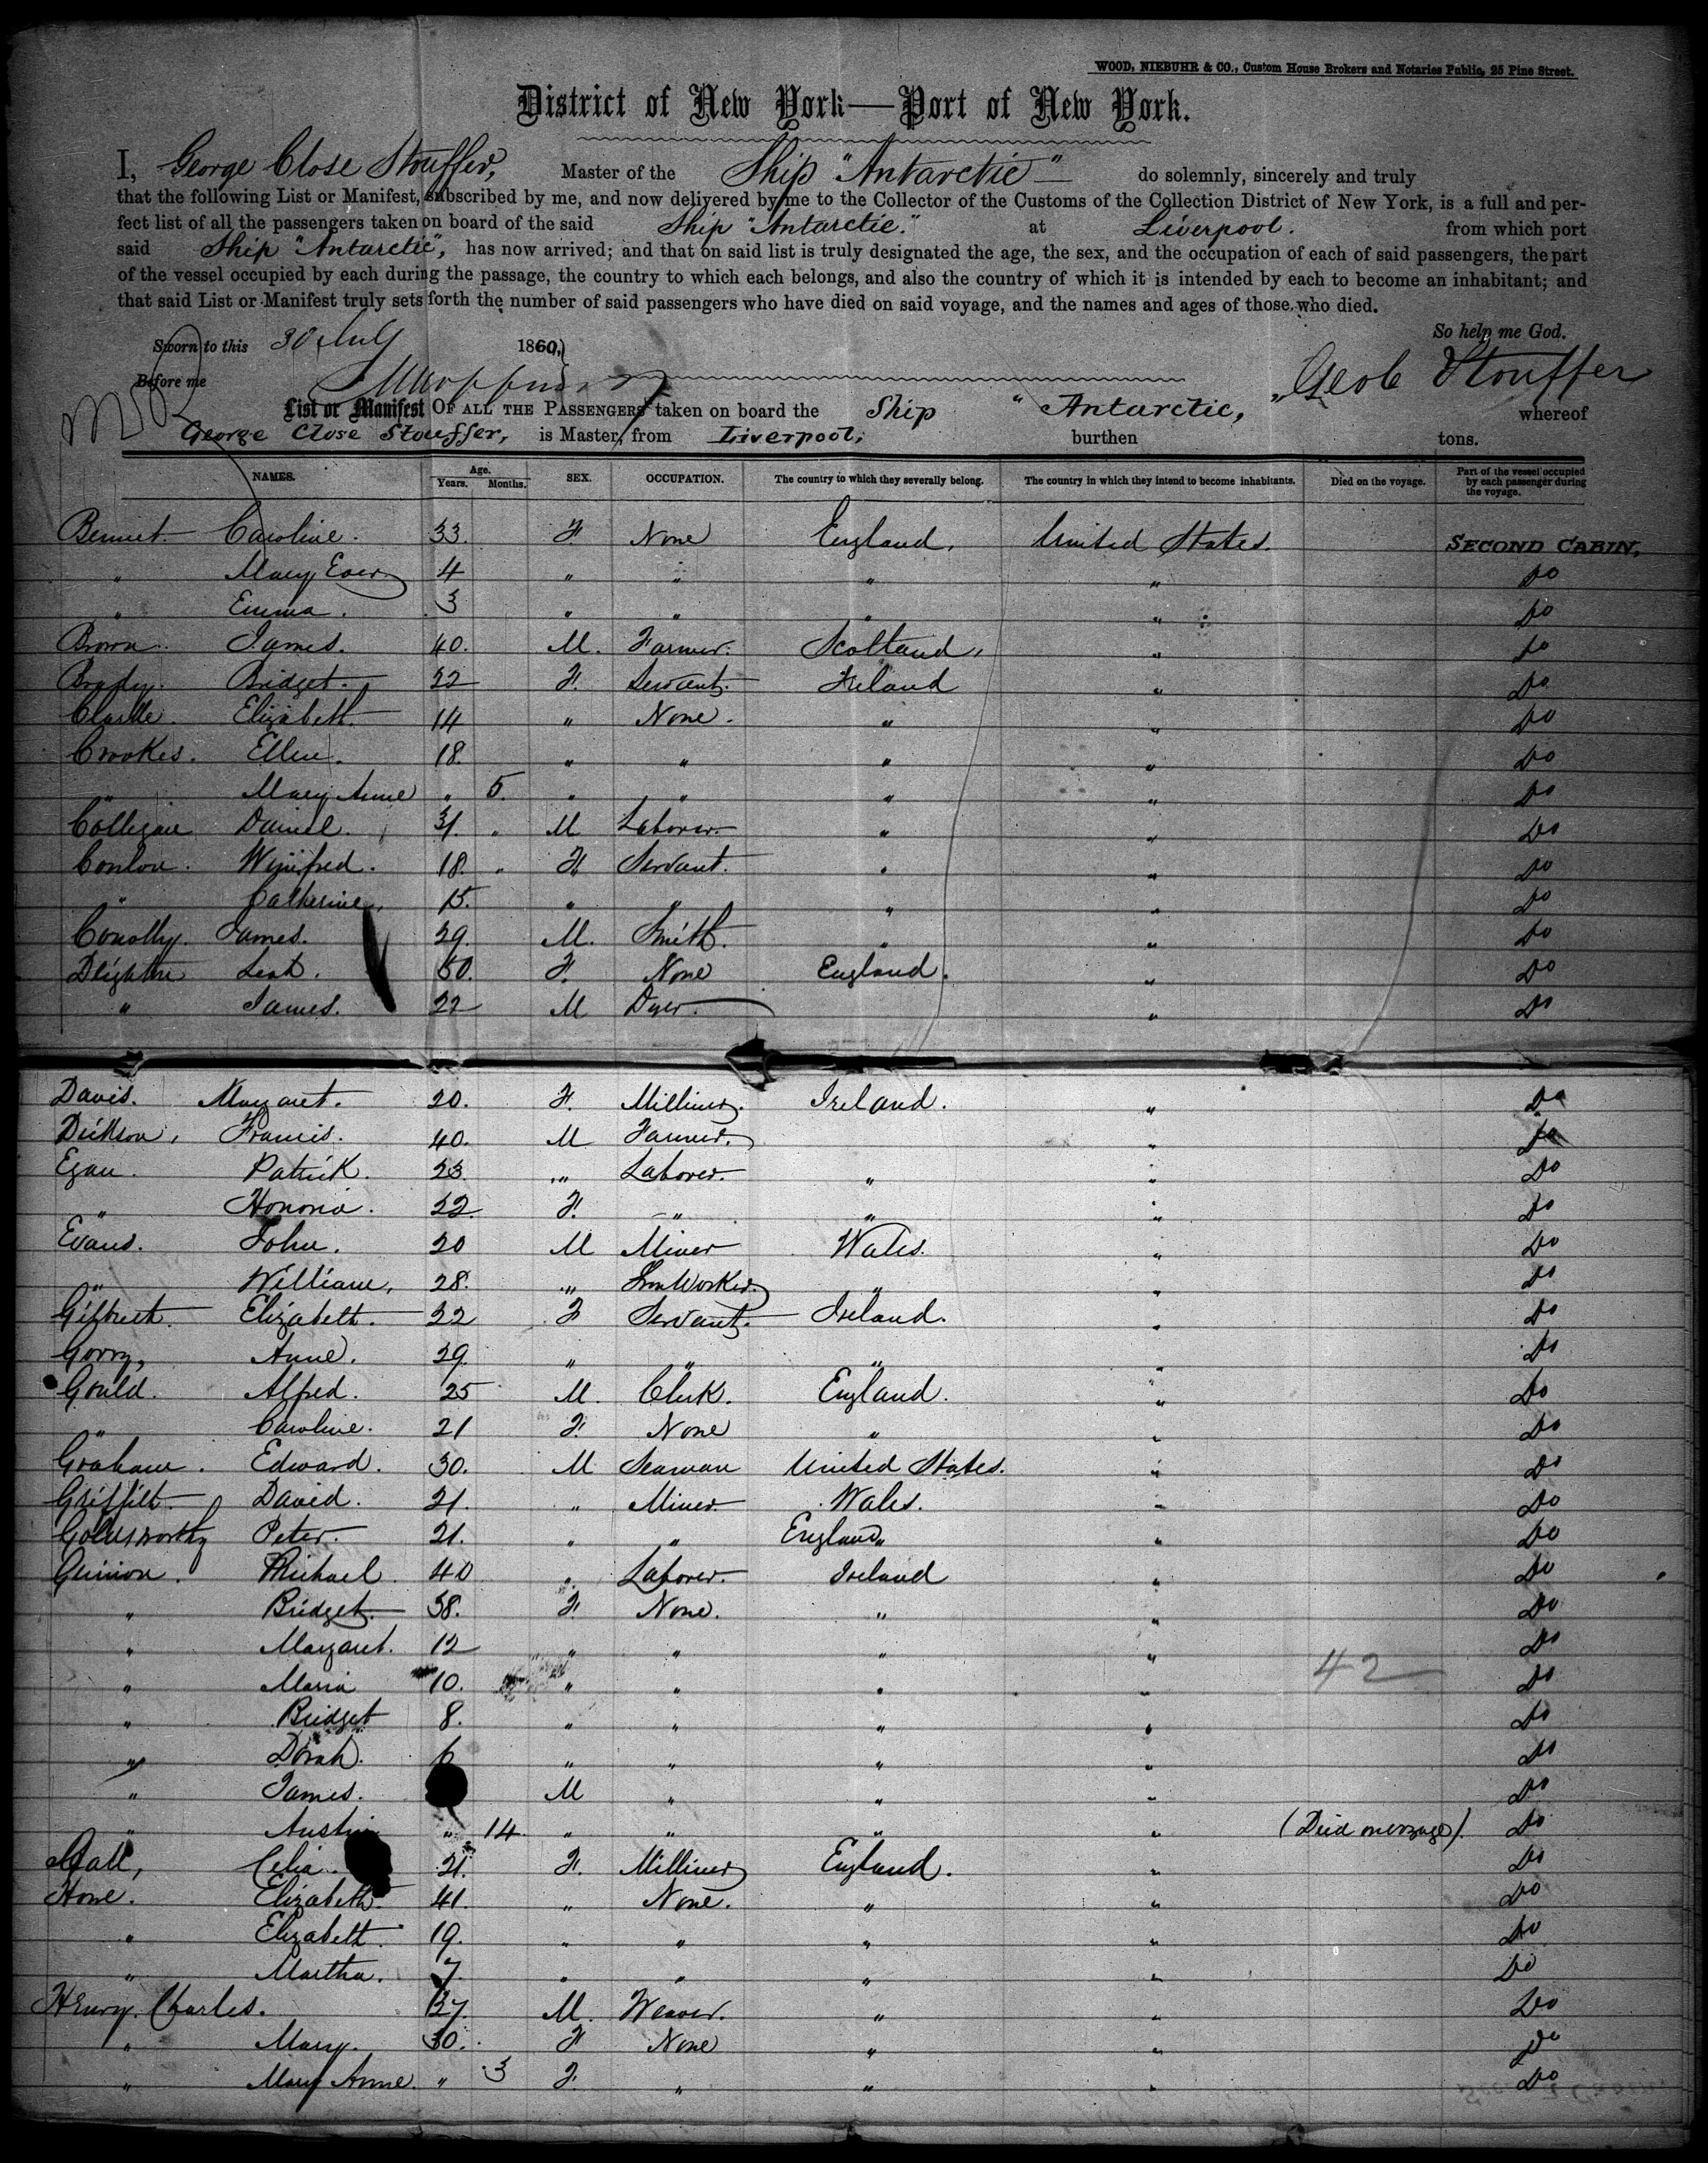 WOOD, NIEBUHR & CO., Custom House Brokers and Notaries Public, 25 Pine Street.
District of New York—Port of New York.
I, George Close Stouffer, Master of the Ship "Antarctic" do solemnly, sincerely and truly
that the following List or Manifest, subscribed by me, and now delivered by me to the Collector of the Customs of the Collection District of New York, is a full and per-
fect list of all the passengers taken on board of the said Ship "Antarctic." at Liverpool. from which port
said Ship "Antarctic", has now arrived; and that on said list is truly designated the age, the sex, and the occupation of each of said passengers, the part
of the vessel occupied by each during the passage, the country to which each belongs, and also the country of which it is intended by each to become an inhabitant; and
that said List or Manifest truly sets forth the number of said passengers who have died on said voyage, and the names and ages of those who died.
So help me God.
Sworn to this 30 July 1860,
Before me
Geo C Stouffer
List or Manifest OF ALL THE PASSENGERS taken on board the Ship "Antarctic," whereof
George Close Stouffer, is Master, from Liverpool, burthen tons.
NAMES. Age. Years. Months. SEX. OCCUPATION. The country to which they severally belong. The country in which they intend to become inhabitants. Died on the voyage. Part of the vessel occupied by each passenger during the voyage.
Bennet Caroline. 33. F. None England. United States. SECOND CABIN,
" Mary 4 " " " " Do
" Emma. 3 " " " " Do
Brown James. 40. M. Farmer. Scotland, " Do
Brady. Bridget. 22 F. Servant. Ireland " Do
Elizabeth. 14 " None. " " Do
Crookes. Ellen. 18. " " " " Do
" Mary Anne " 5. " " " " Do
Daniel. 31. " M Laborer. " " Do
Conlon. Winifred. 18. " F. Servant. " " Do
" Catherine. 15. " " " " Do
Conolly. James. 29. M. Smith. " " Do
Leah. 50. F. None England. " Do
" James. 22 M Dyer. " Do
Davis. Margaret. 20. F. Milliner. Ireland. " Do
Dickson, Francis. 40. M Farmer. " Do
Egan. Patrick. 23. " Laborer. " " Do
" Honoria. 22. F. " " " Do
Evans. John. 20 M Miner Wales. " Do
" William, 28. " Iron Worker. " " Do
Elizabeth. 22 F Servant. Ireland. " Do
Gorry, Anne. 29. " " " " Do
Gould. Alfred. 25 M. Clerk. England. " Do
" Caroline. 21 F. None " " Do
Graham. Edward. 30. M Seaman United States. " Do
Griffith. David. 21. " Miner. Wales. " Do
Goldsworthy Peter. 21. " " England " Do
Michael. 40 " Laborer. Ireland " Do
" Bridget. 38. F. None. " " Do
" Margaret. 12 " " " " Do
" Maria 10. " " " " 42 Do
" Bridget 8. " " " " Do
" Dorah. 6 " " " " Do
" James. M " " " Do
" Austin " 14. " " " " (Died Do
Hall, Celia. 21. F. Milliner England. " Do
Howe. Elizabeth. 41. " None. " " Do
" Elizabeth. 19. " " " " Do
" Martha. 7. " " " " Do
Henry. Charles. 37. M. Weaver. " " Do
" Mary. 30. F None " " Do
" Mary Anne. " 3 F. " " " Do